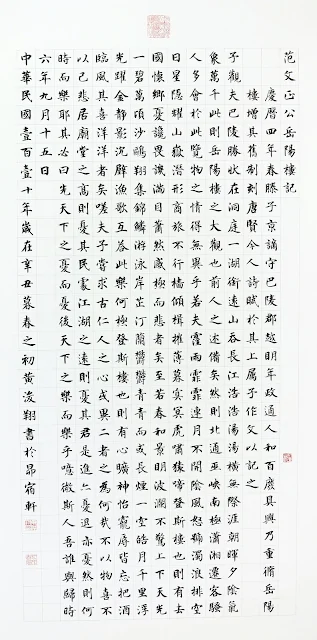 范文正公岳陽樓記
慶曆四年春滕子京謫守巴陵郡越明年政通人和百廢具興乃重脩岳陽
樓增其舊制刻唐賢今人詩賦於其上屬予作文以記之
予觀夫巴陵勝狀在洞庭一湖銜遠山吞長江浩浩湯湯橫無際涯朝暉夕陰氣
象萬千此則岳陽樓之大觀也前人之述備矣然則北通巫峽南極瀟湘遷客騷
人多會於此覽物之情得無異乎若夫霪雨霏霏連月不開陰風怒號濁浪排空
日星隱耀山嶽潛形商旅不行檣傾楫摧薄暮冥冥虎嘯猿啼登斯樓也則有去
國懷鄉憂讒畏譏滿目蕭然感極而悲者矣至若春和景明波瀾不驚上下天光
一碧萬頃沙鷗翔集錦鱗游泳岸芷汀蘭鬱鬱青青而或長煙一空皓月千里浮
光躍金靜影沉璧漁歌互答此樂何極登斯樓也則有心曠神怡寵辱皆忘把酒
臨風其喜洋洋者矣嗟夫予嘗求古仁人之心或異二者之為何哉不以物喜不
以己悲居廟堂之高則憂其民處江湖之遠則憂其君是進亦憂退亦憂然則何
時而樂耶其必曰先天下之憂而憂後天下之樂而樂乎噫微斯人吾誰與歸時
六年九月十五日
中華民國壹百壹十年歲在辛丑暮春之初黃浚翔書於昴宿軒